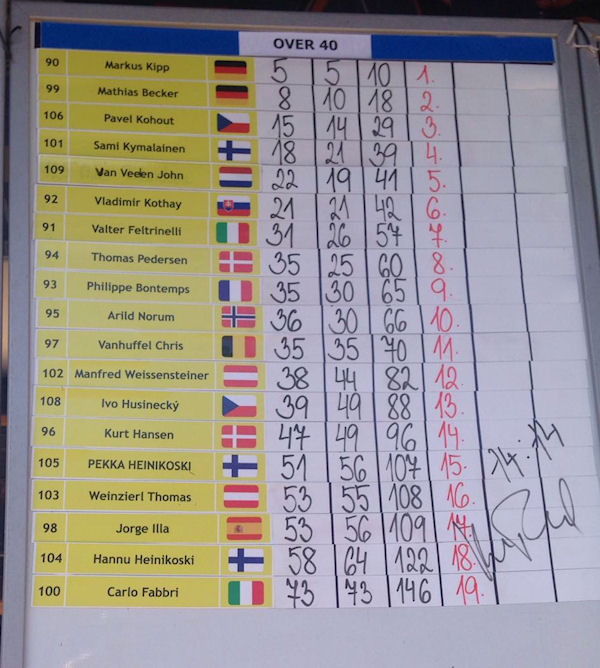 OVER 40
90 Markus Kipp 5 5 10 1.
99 Mathias Becker 8 10 18 2.
106 Pavel Kohout 15 14 29 3.
101 Sami Kymalainen 18 21 39 4.
109 Van Veelen John 22 19 41 5.
92 Vladimir Kothay 21 21 42 6.
91 Valter Feltrinelli 31 26 57 7.
94 Thomas Pedersen 35 25 60 8.
93 Philippe Bontemps 35 30 65 9.
95 Arild Norum 36 30 66 10.
97 Vanhuffel Chris 35 35 70 11.
102 Manfred Weissensteiner 38 44 82 12.
108 Ivo Husinecký 39 49 88 13.
96 Kurt Hansen 47 49 96 14.
105 PEKKA HEINIKOSKI 51 56 107 15. 14:14
103 Weinzierl Thomas 53 55 108 16.
98 Jorge Illa 53 56 109 17.
104 Hannu Heinikoski 58 64 122 18.
100 Carlo Fabbri 73 73 146 19.